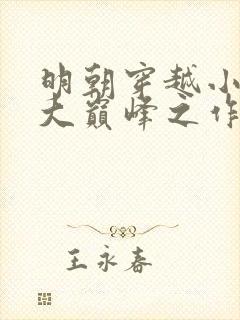 明朝穿越小
大巅峰之作
王永春